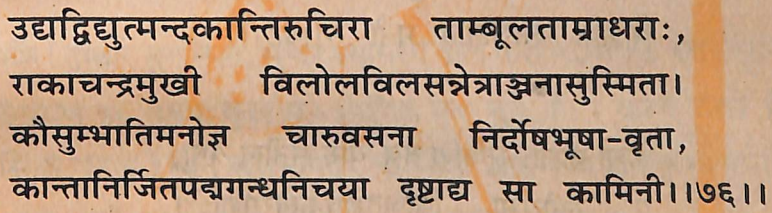 उद्याद्विद्युत्मन्दकान्तिरुचिरा ताम्बूलताम्राधराः,
राकाचन्द्रमुखी विलोलविलसन्नेत्राञ्जनासुस्मिता।
कौसुम्भातिमनोज्ञ चारुवसना निर्दोषभूषा-वृता,
कान्तानिर्जितपद्मगन्धनिचया दृष्टाद्य सा कामिनी।।७६।।